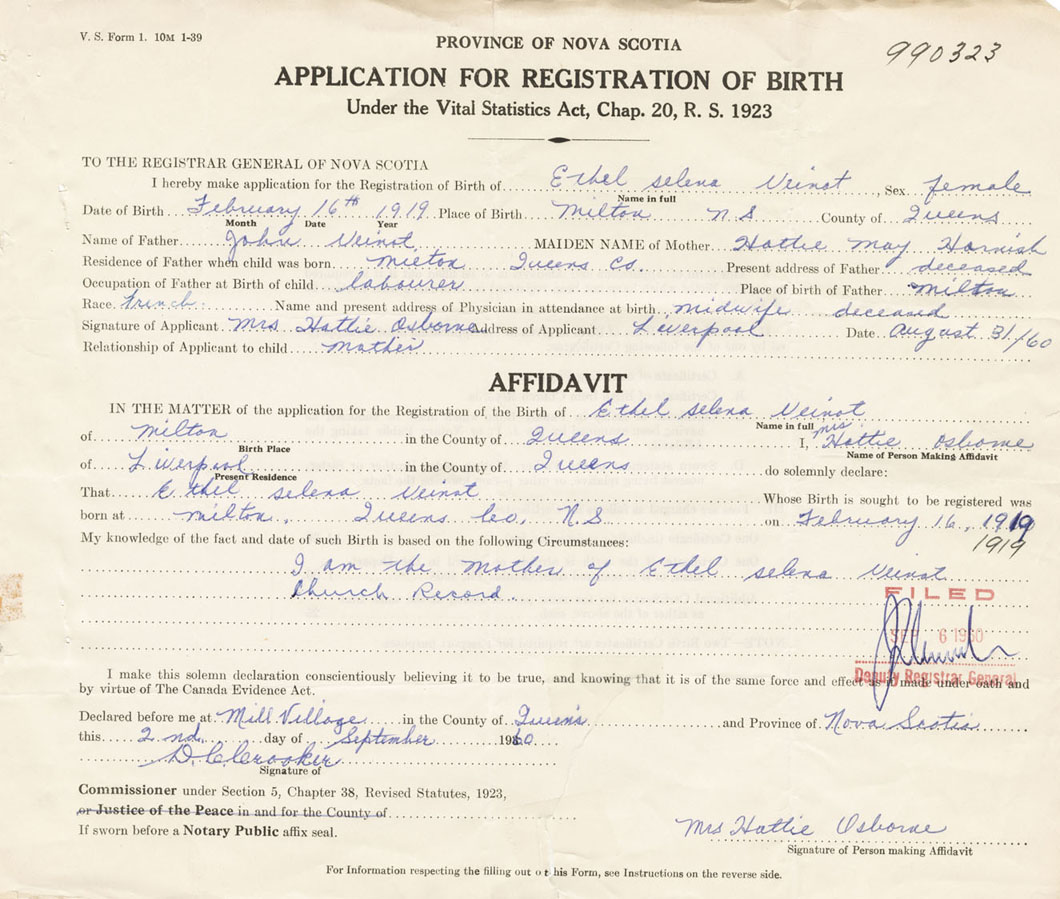 V. S. Form 1. 10M 1-39
990323
PROVINCE OF NOVA SCOTIA
APPLICATION FOR REGISTRATION OF BIRTH
Under the Vital Statistics Act, Chap. 20, R. S. 1923
TO THE REGISTRAR GENERAL OF NOVA SCOTIA
I hereby make application for the Registration of Birth of Ethel Selena Veinot, Sex female
Name in full
Date of Birth February 16th 1919 Place of Birth Milton N S County of Queens
Month Date Year
Name of Father John Veinot MAIDEN NAME of Mother Hattie May Harnish
Residence of Father when child was born Milton Queens Co. Present address of Father deceased
Occupation of Father at Birth of child labourer Place of birth of Father Milton
Race french Name and present address of Physician in attendance at birth midwife deceased
Signature of Applicant Mrs Hattie Osborne Address of Applicant Liverpool Date August 31/60
Relationship of Applicant to child mother
AFFIDAVIT
IN THE MATTER of the application for the Registration of the Birth of Ethel Selena Veinot
Name in full
of Milton in the County of Queens I, Mrs Hattie Osborne
Birth Place Name of Person Making Affidavit
of Liverpool in the County of Queens do solemnly declare:
Present Residence
That Ethel Selena Veinot Whose Birth is sought to be registered was
born at Milton, Queens Co, N.S on February 16, 1919
1919
My knowledge of the fact and date of such Birth is based on the following Circumstances:
I am the Mother of Ethel Selena Veinot
Church Record.
FILED
SEP 6 1960
Deputy Registrar General
I make this solemn declaration conscientiously believing it to be true, and knowing that it is of the same force and effect as if made under oath and
by virtue of The Canada Evidence Act.
Declared before me at Mill Village in the County of Queen's and Province of Nova Scotia
this 2nd. day of September 1960
D. C. Crooker
Signature of
Commissioner under Section 5, Chapter 38, Revised Statutes, 1923,
or Justice of the Peace in and for the County of
If sworn before a Notary Public affix seal.
Mrs Hattie Osborne
Signature of Person making Affidavit
For Information respecting the filling out of this Form, see Instructions on the reverse side.